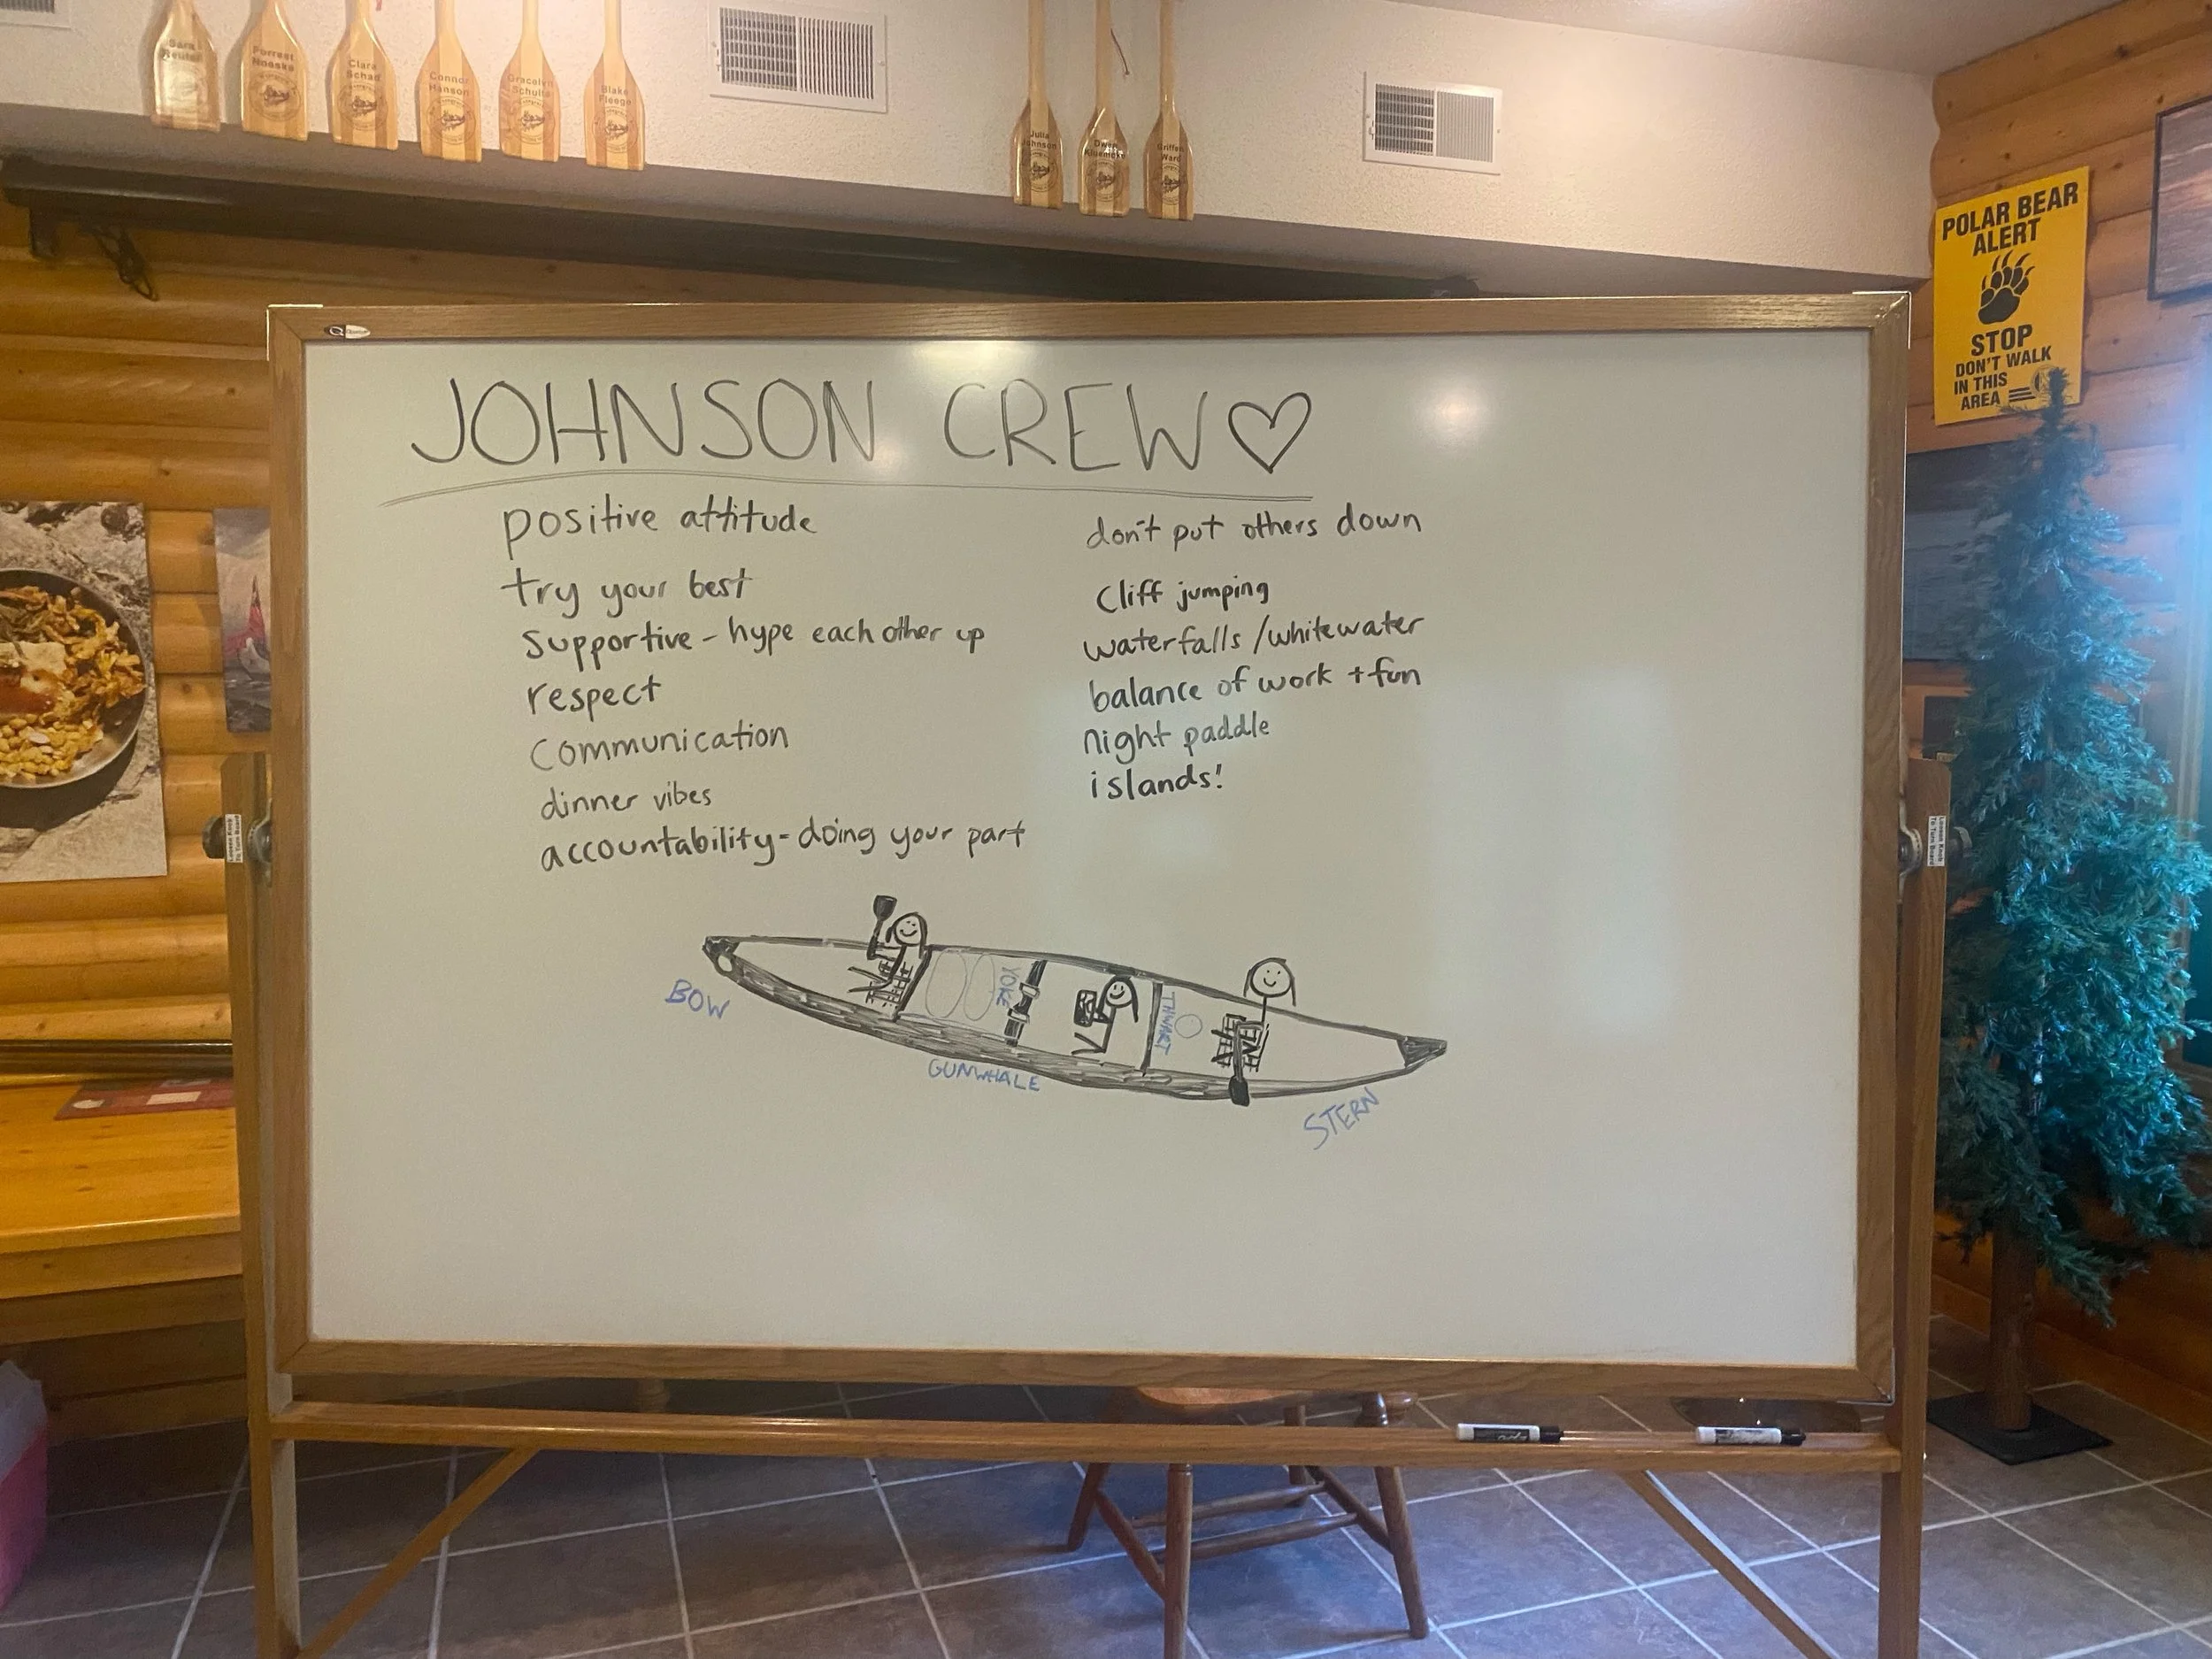 Sara
Reutel
Forrest
Noeske
Clara
Schad
Connor
Hanson
Gracelyn
Schulte
Blake
Fleege
Julia
Johnson
Owen
Griffen
Ward
POLAR BEAR
ALERT
STOP
DON'T WALK
IN THIS
AREA
JOHNSON CREW
positive attitude
try your best
supportive - hype each other up
respect
communication
dinner vibes
accountability - doing your part
don't put others down
cliff jumping
waterfalls / whitewater
balance of work + fun
night paddle
islands!
BOW
YOKE
THWART
GUNWHALE
STERN
Loosen Knob
To Turn Board
Loosen Knob
To Turn Board